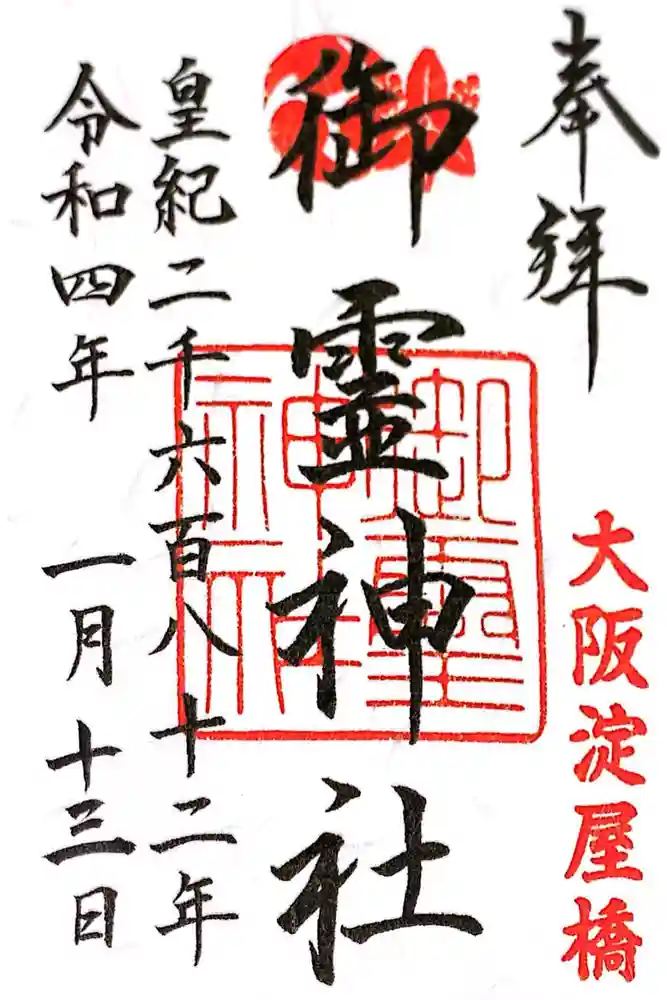 奉拝
大阪淀屋橋
御霊神社
御霊神社
皇紀二千六百八十二年
令和四年 一月十三日